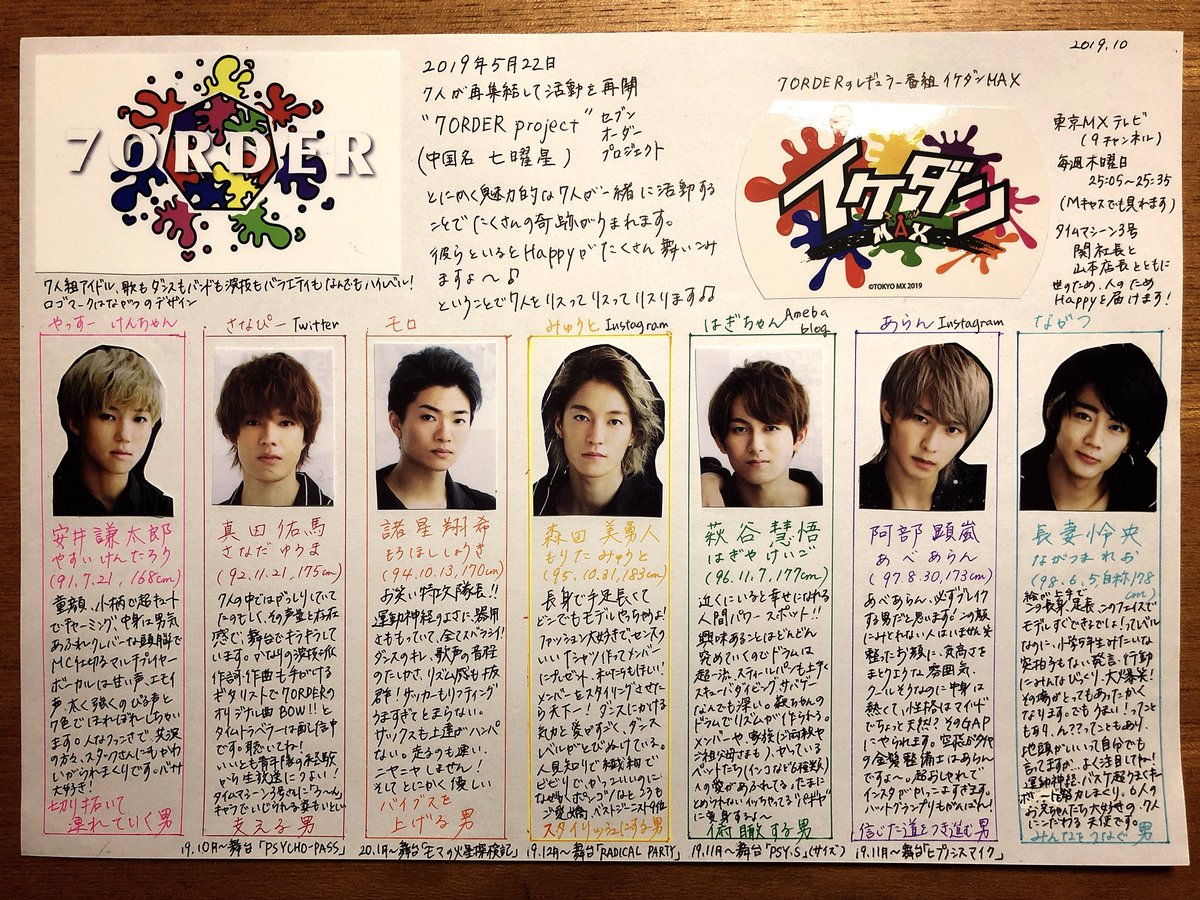 2019.10
7ORDER
7人組アイドル、歌もダンスもバンドも演技もバラエティもなんでもハイレベル!
ロゴマークはながつのデザイン
2019年5月22日
7人が再集結して活動を再開
"7ORDER project" セブン オーダー プロジェクト
(中国名 七曜星)
とにかく魅力的な7人が一緒に活動する
ことでたくさんの奇跡がうまれます。
彼らといるとHappyがたくさん舞いこみ
ますよ〜♪
ということで7人をリスってリスってリスります♫
7ORDERのレギュラー番組イケダンMAX
イケダン
MAX
©TOKYO MX 2019
東京MXテレビ
(9チャンネル)
毎週木曜日
25:05〜25:35
(Mキャスでも見れます)
タイムマシーン3号
関社長と
山本店長とともに
世のため、人のため
Happyを届けます!
やっすー けんちゃん
安井謙太郎
やすい けんたろう
(91.7.21, 168cm)
童顔、小柄で超キュート
でチャーミング、中身は男気
あふれクレバーな頭脳で
MC仕切るマルチプレイヤー
ボーカルは甘い声、エモイ
声、太く強くのびる声と
7色でほれぼれしちゃい
ます。人なつこさで、共演
の方々、スタッフさんにもかわ
いがられまくりです。バナナ
大好き!
切り拓いて
連れていく男
さなぴー Twitter
真田佑馬
さなだ ゆうま
(92.11.21, 175cm)
7人の中ではがっしりしてい
てたのもしく、その声量と存在
感で、舞台でもキラキラして
います。かなりの演技派
作詞・作曲も手がける
ギタリストで7ORDERの
オリジナル曲BOW!!と
タイムトラベラーは配信中
です。聴いてね!
いいとも青年隊の経験
から生放送につよい!
タイムマシーン3号さんに「う〜ん」
キャラでいじられる姿もいとしい
支える男
モロ
諸星翔希
もろほししょうき
(94.10.13, 170cm)
お笑い特攻隊長!!
運動神経のよさに、器用
さももっていて、全てスバライ!
ダンスのキレ、歌声の音程
のたしかさ、リズム感も抜
群!サッカーもリフティング
うますぎてとまらない。
サックスも上達がハンパ
ない。走るのも速い。
ニヤニヤしません!
そしてとにかく優しい
バイブスを
上げる男
みゅうと Instagram
森田美勇人
もりた みゅうと
(95.10.31, 183cm)
長身で手足長くて
どこでもモデルやっちゃうよ!
ファッション大好きで、センスの
いいTシャツ作ってメンバー
にプレゼント、私たちもほしい!
メンバーをスタイリングさせた
ら天下一!ダンスにかける
気力と愛がすごく、ダンス
レベルがとびぬけている。
人見知りで繊細で
ビビリで、かっこいいのに
なぜかポンコツなところも
ご愛嬌、ベストジーニスト9位
スタイリッシュにする男
はぎちゃん Ameba blog
萩谷慧悟
はぎや けいご
(96.11.7, 177cm)
近くにいると幸せになれる
人間パワースポット!!
興味あることはどんどん
究めていくのでドラムは
超一流、スティールパンも上手く
スキューバダイビング、サバゲー
なんでも深い。萩ちゃんの
ドラムでリズムが作られる。
メンバーや家族(ご両親や
ご祖父母さまも)、かっている
ペットたち(インコなど6種类)
人の愛があふれてる。たまに
とめられないイッちゃってる
に変身するよ〜
俯瞰する男
あらん Instagram
阿部顕嵐
あべ あらん
(97.8.30, 173cm)
あべあらん、必ずブレイク
する男だと思います。この顔
にみとれない人はいません笑
整ったお顔に、気高さを
まとうような雰囲気、
クールそうなのに中身は
熱くて、小性格はマイルド
でちょっと天然!?そのGAP
にやられます。空港が似合
の金髪整備士はあらん
ですよ〜。超おしゃれで
インスタがかっこよすぎます。
ハットグランプリもがんばれ!
信じた道をつき進む男
ながつ
長妻怜央
ながつま れお
(98.6.5 自称178cm)
絵が上手で
この長身、足長、このフェイスで
モデルすぐできるでしょ!ってレベル
なのに、小学5年生みたいな
突拍子もない発言、行動
にみんなびっくり、大爆笑!
その場がとってもあったかく
なります。でもうまい!ってこと
もあり、ん??ってこともあり、
地頭がいいって自分でも
言ってますが…よく注目してね!
運動神経、バスケ超うまくキー
ボードも努力しまくり。6人の
お兄ちゃんたち大好きの、7人
にこだわる天使です。
みんなをつなぐ男
19.10月〜舞台「PSYCHO-PASS」
20.1月〜舞台「モマの火星探検記」
19.12月〜舞台「RADICAL PARTY」
19.11月〜舞台「PSY.S」(サイズ)
19.11月〜舞台「ヒプノシスマイク」